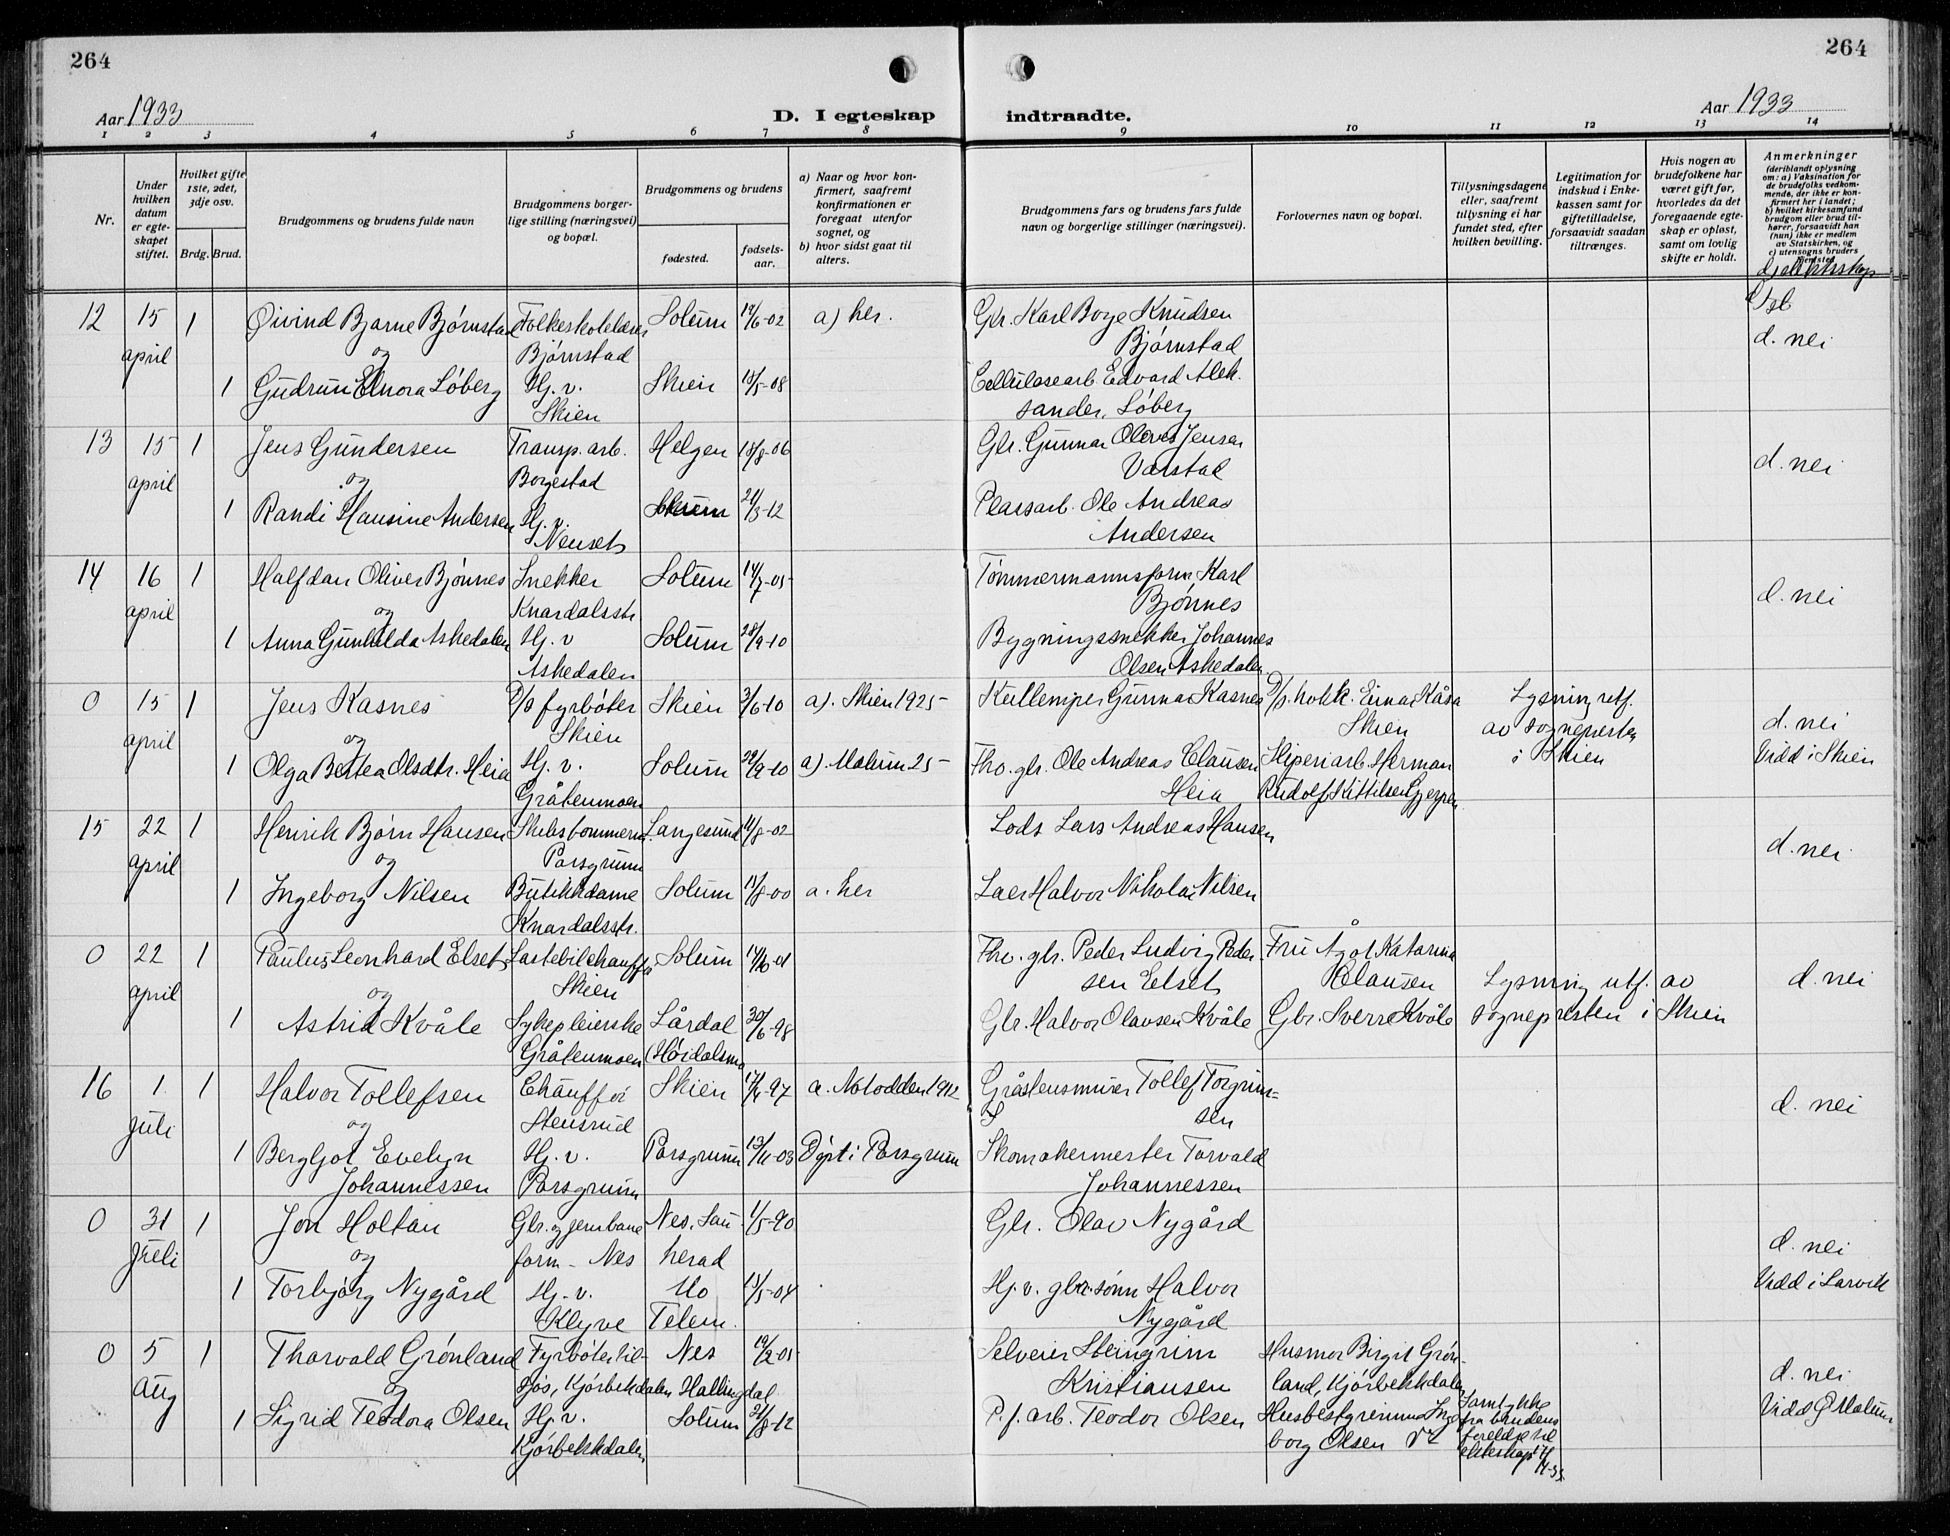 264
264
Aar 1933
D. I egteskap
indtraadte.
Aar 1933
1 2 3 4 5 6 7 8 9 10 11 12 13 14
Nr.
Under hvilken datum er egteskapet stiftet.
Hvilket gifte 1ste, 2det, 3dje osv.
Brdg. Brud.
Brudgommens og brudens fulde navn
Brudgommens borgerlige stilling (næringsvei) og bopæl.
Brudgommens og brudens
fødested.
fødselsaar.
a) Naar og hvor konfirmert, saafremt konfirmationen er foregaat utenfor sognet, og
b) hvor sidst gaat til alters.
Brudgommens fars og brudens fars fulde navn og borgerlige stillinger (næringsvei).
Forlovernes navn og bopæl.
Tillysningsdagene eller, saafremt tillysning ei har fundet sted, efter hvilken bevilling.
Legitimation for indskud i Enkekassen samt for giftetilladelse, forsaavidt saadan tiltrænges.
Hvis nogen av brudefolkene har været gift før, hvorledes da det foregaaende egteskap er opløst, samt om lovlig skifte er holdt.
Anmerkninger
(deriblandt oplysning om: a) Vaksination for de brudefolks vedkommende, der ikke er konfirmert her i landet; b) hvilket kirkesamfund brudgom eller brud tilhører, forsaavidt han (hun) ikke er medlem av Statskirken, og c) utensogns bruders hjemsted
12 15 1 Øivind Bjarne Bjørnstad Folkeskolelærer Solum 17/6-02 a) her. Gbr. Karl Boye Knudsen
april og Bjørnstad Bjørnstad d. nei
1 Gudrun Elnora Løberg Hj. v. Skien 15/5-08 Cellulosearb. Edvard Alek-
Skien sander Løberg
13 15 1 Jens Gundersen Transp. arb. Helgen 18/8-06 Gbr. Gunnar Olaves Jensen
april og Borgestad Værstad d. nei
1 Randi Hansine Andersen Hj. v. 21/3-12 Plassarb. Ole Andreas
Nenset Andersen
14 16 1 Halfdan Oliver Bjønnes Snekker Solum 14/7-05 Tømmermannsform. Karl
april og Knardalsstr Bjønnes d. nei
1 Anna Gunhilda Askedalen Hj. v Solum 28/9-10 Bygningssnekker Johannes
Askedalen Olsen Askedalen
0 15 1 Jens Kasnes D/S fyrbøter Skien 3/6-10 a). Skien 1925- Kullemper Gunnar Kasnes D/S. kokk. Einar Kåsa Lysning utf.
april og Skien Skien av sognepresten d. nei
1 Olga Bertea Olsdtr. Heia Hj. v. Solum 22/9-10 a). Melum 25- Fho. gbr. Ole Andreas Clausen Sliperiarb Herman i Skien Vidd i Skien
Gråtenmoen Heia Rudolf Kittilsen Gjerpen
15 22 1 Henrik Bjørn Hansen Langesund 11/8-02 Lods Lars Andreas Hansen
april og Porsgrunn d. nei
1 Ingeborg Nilsen Butikkdame Solum 11/8-00 a. her Laer Halvor Nikolai Nilsen
Knardalsstr.
0 22 1 Paulus Leonhard Elset Lastebilchauffør Solum 14/10-01 Fho. gbr. Peder Ludvig Peder- Fru Ågot Katarina
april og Skien sen Elset Clausen Lysning utf. av d. nei
1 Astrid Kvåle Sykepleierske Lårdal 30/6-98 Gbr. Halvor Olavsen Kvåle Gbr. Sverre Kvåle sognepresten i Skien
Gråtenmoen (Høidalsmo
16 1. 1 Halvor Tollefsen Chauffør Skien 17/4-97 a. Notodden 1912 Gråstensmurer Tollef Torgrim-
juli og Stensrud sen d. nei
1 Bergljot Evelyn Hj. v. Porsgrunn 13/11-03 Døpt i Porsgrunn Skomakermester Torvald
Johannessen Porsgrunn Johannessen
0 31 1 Jon Holtan Gbr. og jernbane Nes, Sau- 1/5-90 Gbr. Olav Nygård
juli og form - Nes herad d. nei
1 Torbjørg Nygård Hj. v. Mo 15/5-04 Hj. v. gbr. sønn Halvor Vidd i Larvik
Klyve Telem. Nygård
0 5 1 Thorvald Grønland Fyrbøter til- Nes 19/2-05 Selveier Steingrim Husmor Birgit Grøn-
aug og sjøs, Kjørbekkdalen Hallingdal Kristiansen land, Kjørbekkdalen d. nei
1 Sigrid Teodora Olsen Hj. v. Solum 31/8-12 P. f. arb. Teodor Olsen Husbestyrerinne Inge- Samtykke fra brudens Vidd i Melum
Kjørbekkdalen borg Olsen foreldre til ekteskap